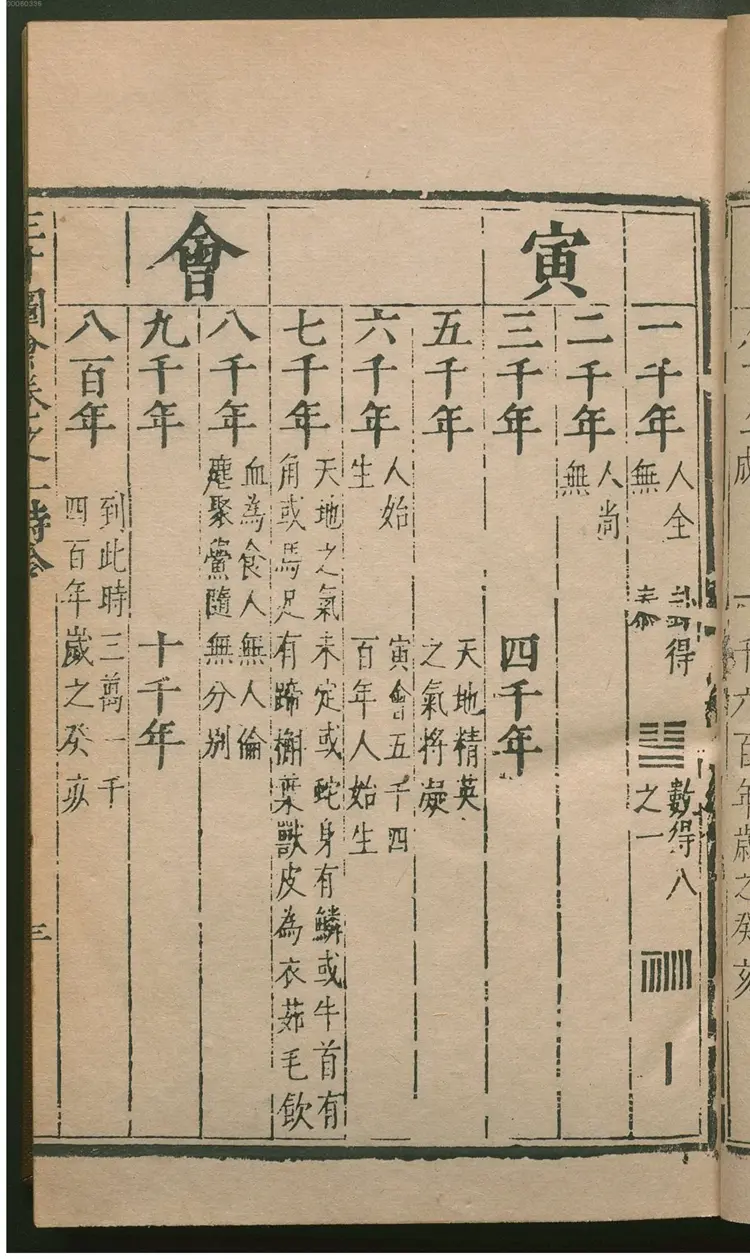 寅會
一千年 人全無 得 數得八之一
二千年 人尚無
三千年 四千年
五千年 天地精英之氣將凝
六千年 人始生 寅會五千四百年人始生
七千年 天地之氣未定或蛇身有鱗或牛首有角或馬足有蹄槲葉獸皮為衣茹毛飲
八千年 血為食人無人倫麀聚黨隨無分別
九千年 十千年
八百年 到此時三萬一千四百年歲之癸亥
三才圖會卷之一時令
三
千六百年歲之癸亥
00060336